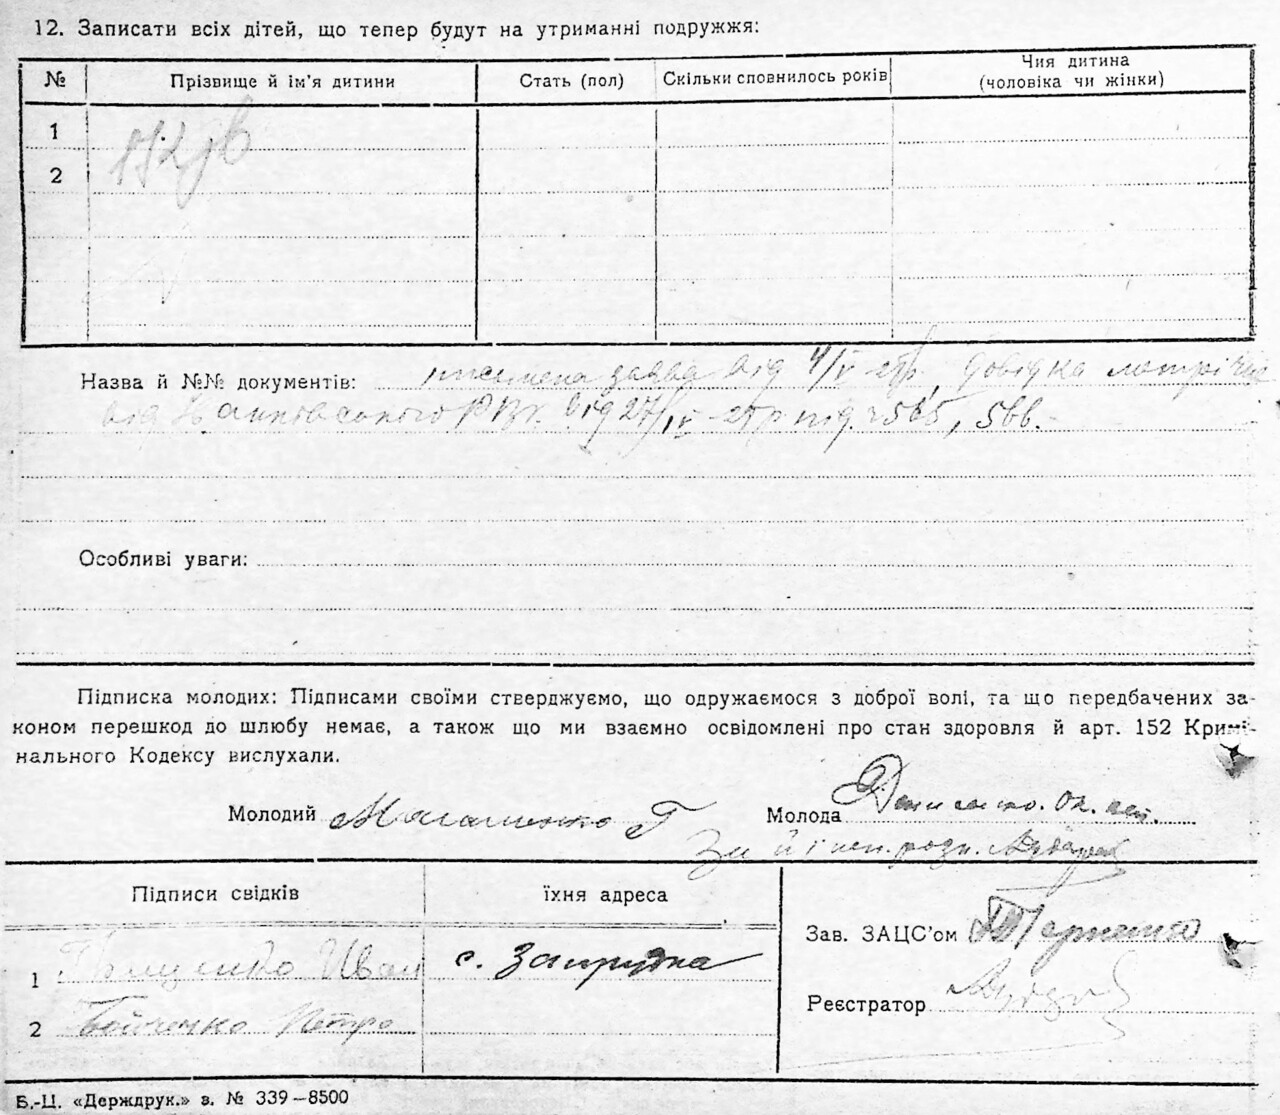 12. Записати всіх дітей, що тепер будут на утриманні подружжя:
№ Прізвище й ім'я дитини Стать (пол) Скільки сповнилось років Чия дитина
(чоловіка чи жінки)
1
2
Назва й №№ документів: письмена заява від 4/V довідка
від 27/IV під 565, 566.
Особливі уваги:
Підписка молодих: Підписами своїми стверджуємо, що одружаємося з доброї волі, та що передбачених за-
коном перешкод до шлюбу немає, а також що ми взаємно освідомлені про стан здоровля й арт. 152 Кримі-
нального Кодексу вислухали.
Молодий Г Молода
За
Підписи свідків їхня адреса
Зав. ЗАЦС'ом
1 Іван с. Запрудка
Реєстратор
2 Бойченко Петро
Б.-Ц. «Держдрук.» з. № 339—8500